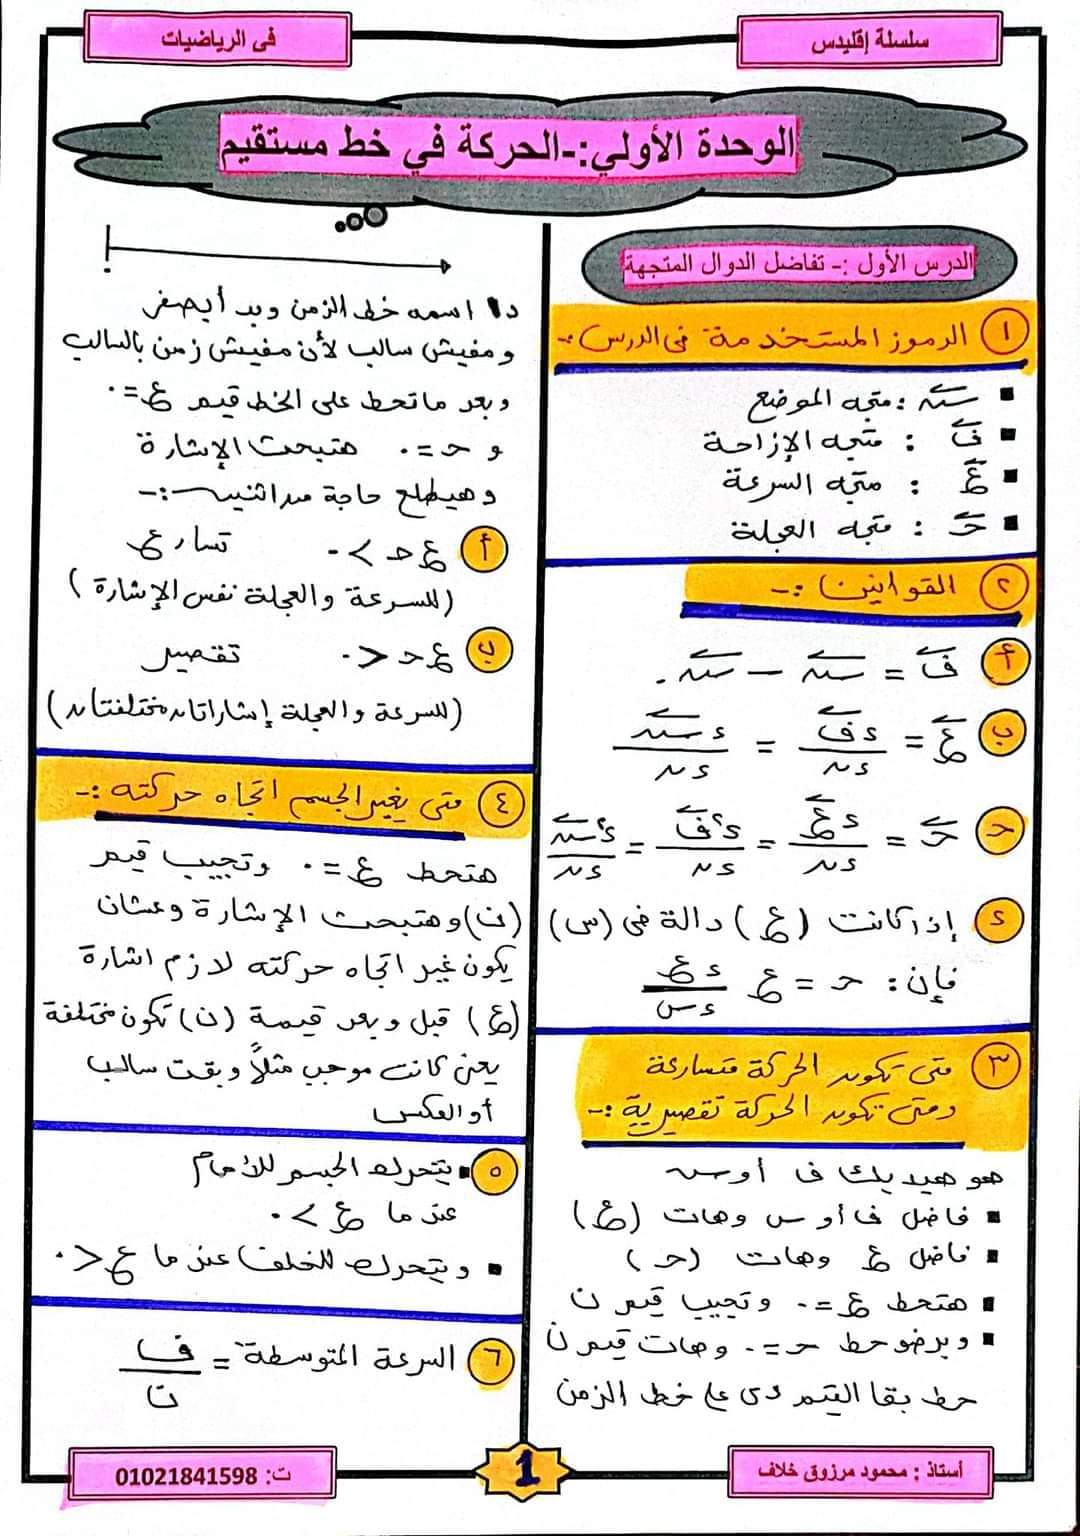 سلسلة إقليدس
فى الرياضيات
الوحدة الأولي:-الحركة في خط مستقيم
الدرس الأول :- تفاضل الدوال المتجهة
١ الرموز المستخدمة فى الدرس :-
▪ س⃗ : متجه الموضع
▪ ف⃗ : متجه الإزاحة
▪ ع⃗ : متجه السرعة
▪ حـ⃗ : متجه العجلة
٢ القوانين :-
أ ف⃗ = س⃗ - س⃗.
ب ع⃗ = ءف⃗/ءن = ءس⃗/ءن
حـ حـ⃗ = ءع⃗/ءن = ء٢ف⃗/ءن = ء٢س⃗/ءن
ء إذا كانت (ع) دالة فى (س)
فإن: حـ = ع ءع/ءس
٣ متى تكون الحركة متسارعة
ومتى تكون الحركة تقصيرية :-
هو هيديك ف أو س
▪ فاضل ف أو س وهات (ع)
▪ فاضل ع وهات (حـ)
▪ هتحط ع = ٠ وتجيب قيم ن
▪ وبرضو حط حـ = ٠ وهات قيم ن
حط بقا القيم دى على خط الزمن
٠
دا اسمه خط الزمن وبدأ بصفر
ومفيش سالب لأن مفيش زمن بالسالب
وبعد ما تحط على الخط قيم ع = ٠
و حـ = ٠ هتبحث الإشارة
وهيطلع حاجة من اثنين :-
أ ع حـ > ٠ تسارع
(للسرعة والعجلة نفس الإشارة)
ب ع حـ < ٠ تقصير
(للسرعة والعجلة إشارتان مختلفتان)
٤ متى يغير الجسم اتجاه حركته :-
هتحط ع = ٠ وتجيب قيم
(ن) وهتبحث الإشارة وعشان
يكون غير اتجاه حركته لازم اشارة
(ع) قبل وبعد قيمة (ن) تكون مختلفة
يعنى كانت موجب مثلاً وبقت سالب
أو العكس
٥ ▪ يتحرك الجسم للأمام
عندما ع > ٠
▪ ويتحرك للخلف عندما ع < ٠
٦ السرعة المتوسطة = ف/ن
أستاذ : محمود مرزوق خلاف
1
ت: 01021841598